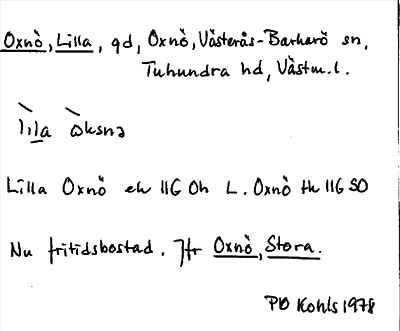 Oxnö, Lilla, gd, Oxnö, Västerås-Barkarö sn,
Tuhundra hd, Västm.l.
lìla ö̀ksnə
Lilla Oxnö ek 11G 0h L. Oxnö tk 11G SO
Nu fritidsbostad. Jfr Oxnö, Stora.
PO Kohls 1978